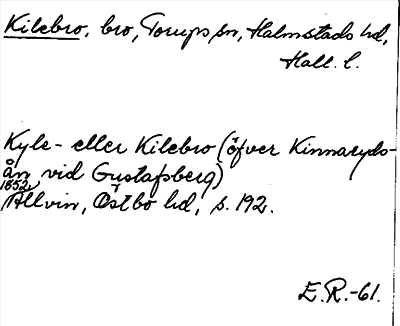 Kilebro, bro, Torups sn, Halmstads hd,
Hall. l.
Kyle- eller Kilebro (öfver Kinnaryds-
ån vid Gustafsberg)
1852
Allvin, Östbo hd, s. 192.
E.R.-61.